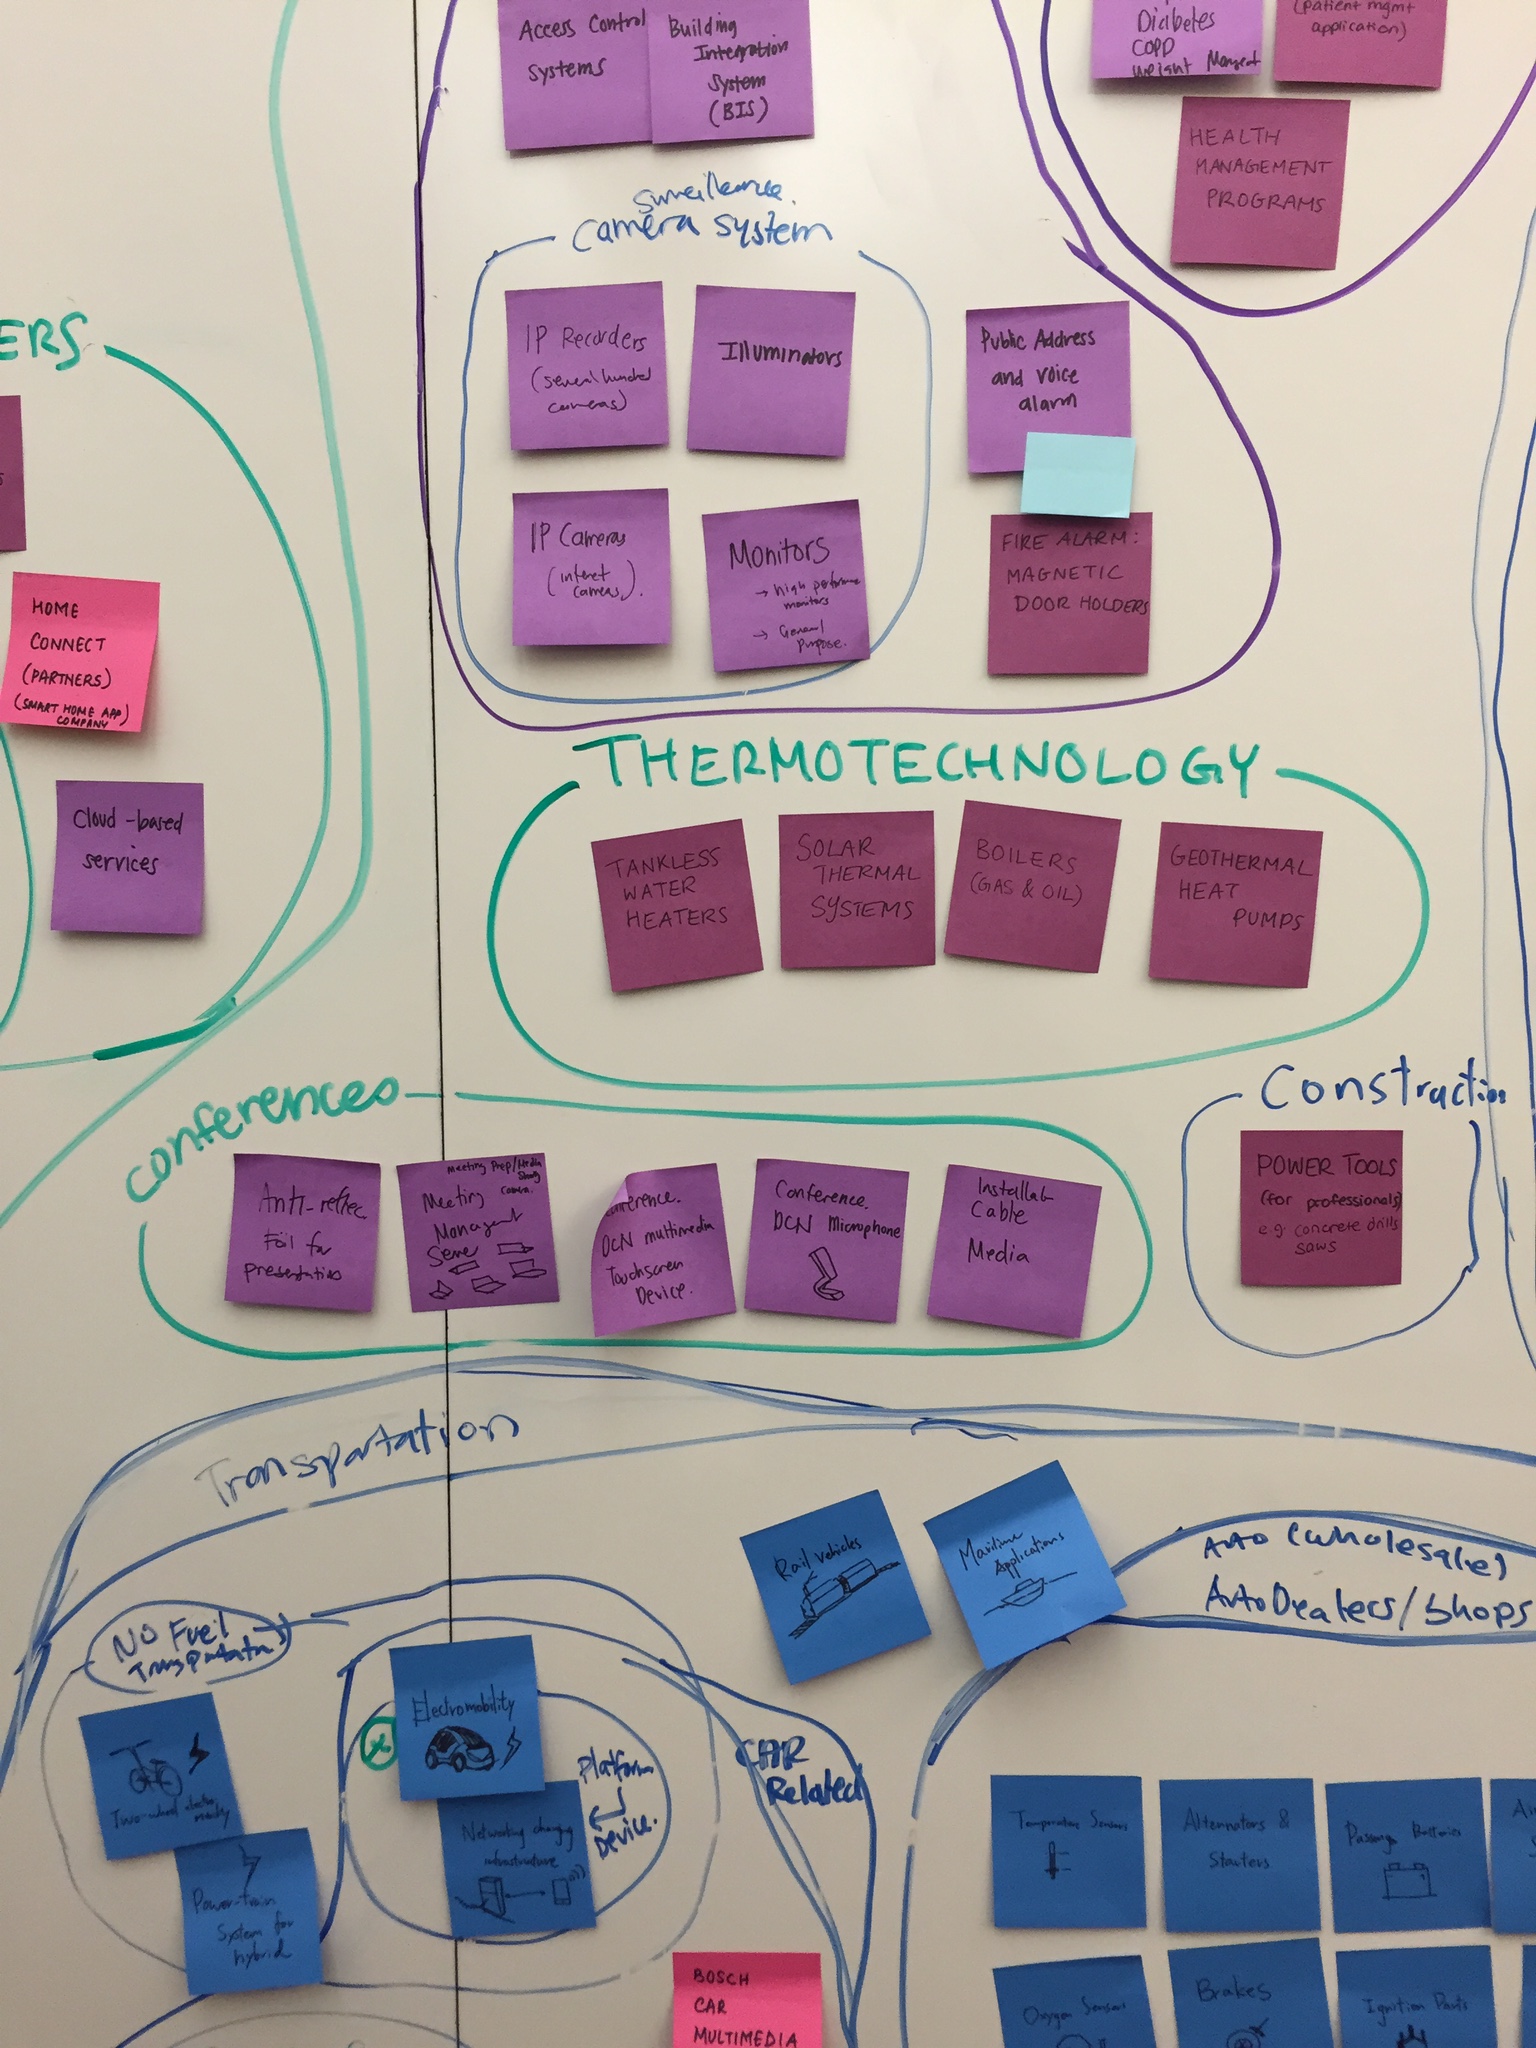 Access Control
Systems
Building
Integration
System
(BIS)
Diabetes
COPD
Weight
(patient mgmt
application)
HEALTH
MANAGEMENT
PROGRAMS
camera system
IP Recorders
(several hundred
cameras)
Illuminators
Public Address
and voice
alarm
IP Cameras
(internet
cameras).
Monitors
→ high performance
monitors
→ General
purpose.
FIRE ALARM:
MAGNETIC
DOOR HOLDERS
ERS
HOME
CONNECT
(PARTNERS)
(SMART HOME APP)
COMPANY
Cloud-based
services
THERMOTECHNOLOGY
TANKLESS
WATER
HEATERS
SOLAR
THERMAL
SYSTEMS
BOILERS
(GAS & OIL)
GEOTHERMAL
HEAT
PUMPS
Conferences
Anti-reflec
Foil for
presentation
Meeting Prep/Media
Meeting
DCN multimedia
Touchscreen
Device.
Conference.
DCN Microphone
Cable
Media
Construction
POWER TOOLS
(for professionals)
e.g concrete drills
saws
Transportation
Rail vehicles
Maritime
Applications
Auto (wholesale)
Auto Dealers/Shops
No Fuel
Electromobility
Platform
Device.
Networking charging
infrastructure
CAR
Related
Two-wheel
Power-train
System for
hybrid
Temperature Sensors
Alternators &
Starters
Batteries
Oxygen Sensors
Brakes
Ignition Parts
BOSCH
CAR
MULTIMEDIA